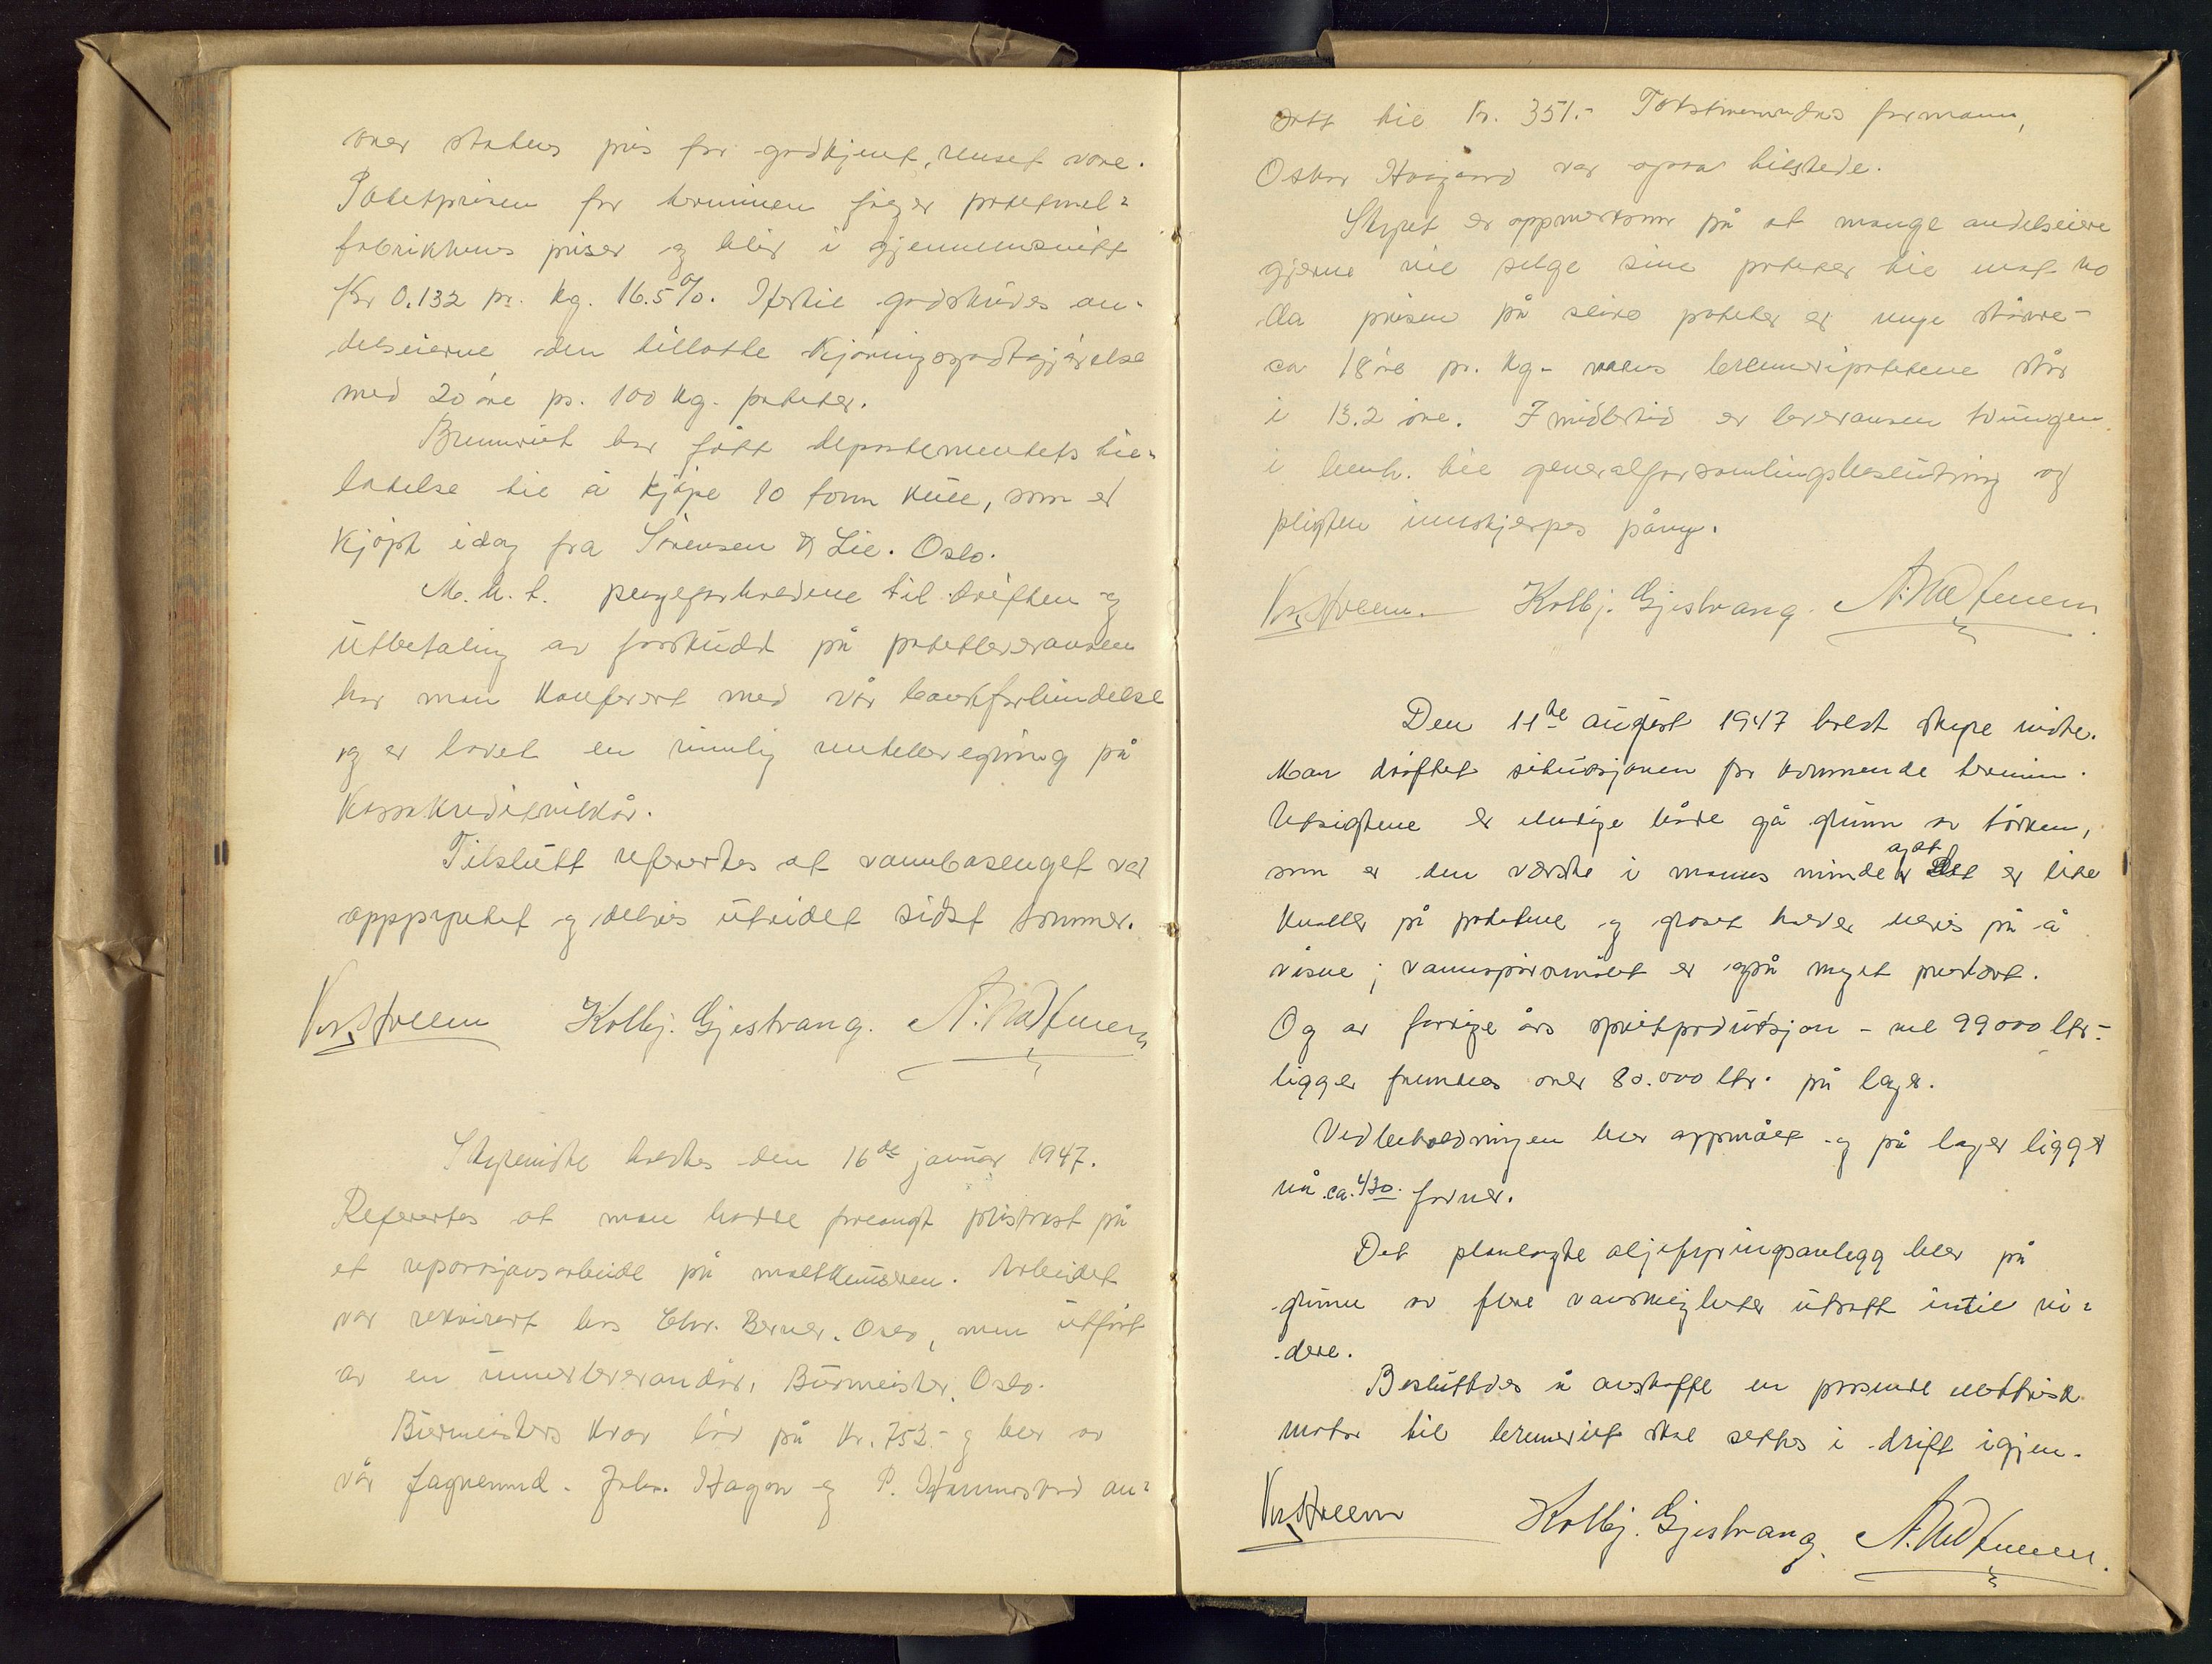 over statens pris for godkjent, renset vare.
Potetprisen for terminen følger potetmel-
fabrikkenes priser og blir i gjennemsnitt
Kr 0.132 pr. kg. 16.5%. Hertil godskrives an-
delseierne den tillatte kjøringsgodtgjørelse
med 20 øre pr. 100 kg. poteter.
Brenneriet har fått departementets til-
latelse til å kjøpe 10 tonn kull, som er
kjøpt idag fra Sørensen & Lie. Oslo.
M. h. t. pengeforholdene til driften og
utbetaling av forskudd på potetleveransen
har man konferert med vår bankforbindelse
og er lovet en rimelig renteberegning på
Kassakreditvilkår.
Tilslutt refertes at vannbasenget var
opppyntet og delvis utvidet sidst sommer.
Kolbj. Gjestvang.
Styremøte holdtes den 16de januar 1947.
Refertes at man hadde forlangt pristakst på
et reparasjonsarbeide på maltknuseren. Arbeidet
var rekvirert hos Chr. Berner. Oslo, men utført
av en underleverandør, Burmeister, Oslo.
Burmeisters krav lød på kr. 752.- og blev av
vår fagnemnd. Johs. Hagen og P. an-
satt til kr. 351.- Takstnemndas formann,
Oskar var også tilstede.
Styret er oppmerksom på at mange andelseiere
gjerne vil selge sine poteter til mat no
da prisen på slike poteter er mye større -
ca 18 øre pr. kg - mens brenneripotetene står
i 13.2 øre. Imidlertid er leveransen tvungen
i henh. til generalforsamlingsbeslutning og
pligten innskjerpes påny.
Kolbj. Gjestvang.
Den 11te august 1947 holdt styre møte.
Man drøftet situasjonen for kommende termin.
Utsigtene er elendige både på grunn av tørken,
som er den værste i manns minde og at det er lite
knoller på potetene og graset holder delvis på å
visne; vannspørsmålet er også meget prekært.
Og av forrige års spritproduksjon - vel 99000 ltr. -
ligger fremdeles over 80.000 ltr. på lager.
Vedbeholdningen blev oppmålt og på lager ligger
nå ca. 430 favner.
Det planlagte oljefyringsanlegg blev på
grunn av flere vanskeligheter utsatt intil vi-
dere.
Besluttedes å anskaffe en passende elektrisk
motor til brenneriet skal settes i drift igjen.
Kolbj. Gjestvang.